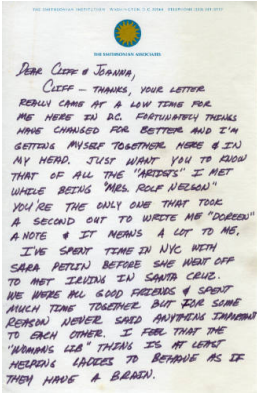 THE SMITHSONIAN INSTITUTION WASHINGTON, D.C. 20560 TELEPHONE
THE SMITHSONIAN ASSOCIATES
DEAR CLIFF & JOANNA,
CLIFF - THANKS, YOUR LETTER
REALLY CAME AT A LOW TIME FOR
ME HERE IN D.C. FORTUNATELY THINGS
HAVE CHANGED FOR BETTER AND I'M
GETTING MYSELF TOGETHER HERE & IN
MY HEAD. JUST WANT YOU TO KNOW
THAT OF ALL THE "ARTISTS" I MET
WHILE BEING "MRS. ROLF NELSON"
YOU'RE THE ONLY ONE THAT TOOK
A SECOND OUT TO WRITE ME "DOREEN"
A NOTE & IT MEANS A LOT TO ME.
I'VE SPENT TIME IN NYC WITH
SARA PETLIN BEFORE SHE WENT OFF
TO MET IRVING IN SANTA CRUZ.
WE WERE ALL GOOD FRIENDS & SPENT
MUCH TIME TOGETHER BUT FOR SOME
REASON NEVER SAID ANYTHING IMPORTANT
TO EACH OTHER. I FEEL THAT THE
"WOMANS LIB" THING IS AT LEAST
HELPING LADIES TO BEHAVE AS IF
THEY HAVE A BRAIN.